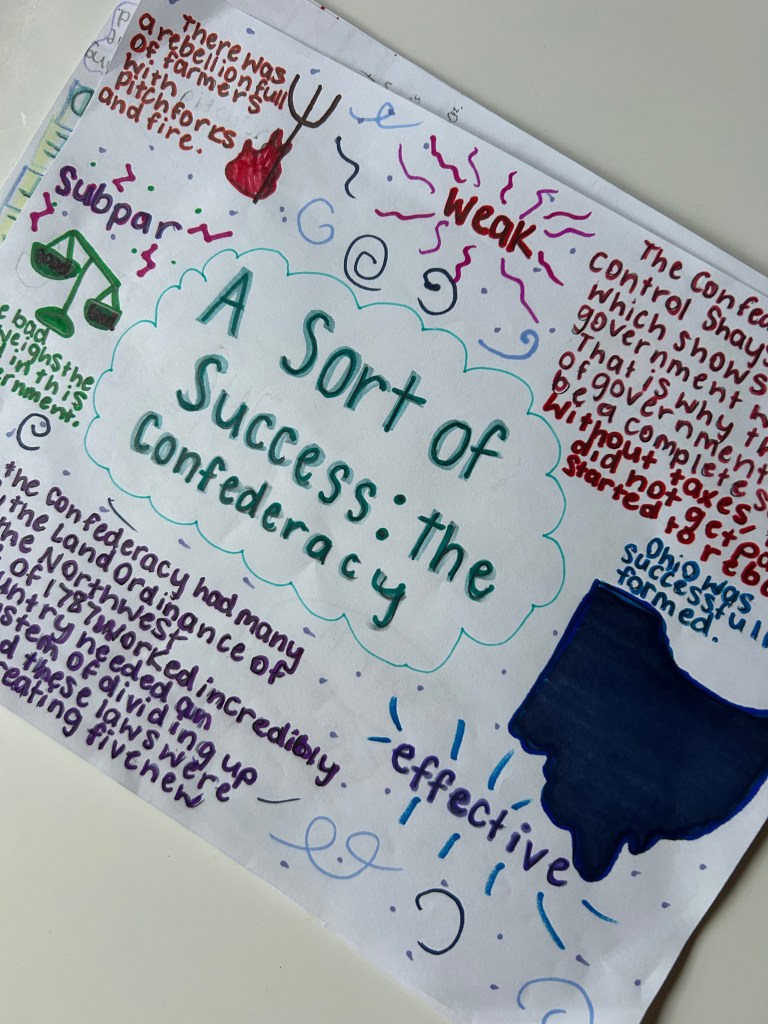 There was
a rebellion full
of farmers
with
pitchforks
and fire.
Subpar
bad
weighs the
in this
weak
The Confe
control Shays
which shows
government w
That is why th
of government
be a complete s
without taxes,
did not get pa
started to rebe
A Sort of
Success: the
Confederacy
the Confederacy had many
the Land Ordinance of
the Northwest
of 1787 worked incredibly
needed an
of dividing up
these laws were
five new
Ohio was
successfull
formed.
effective